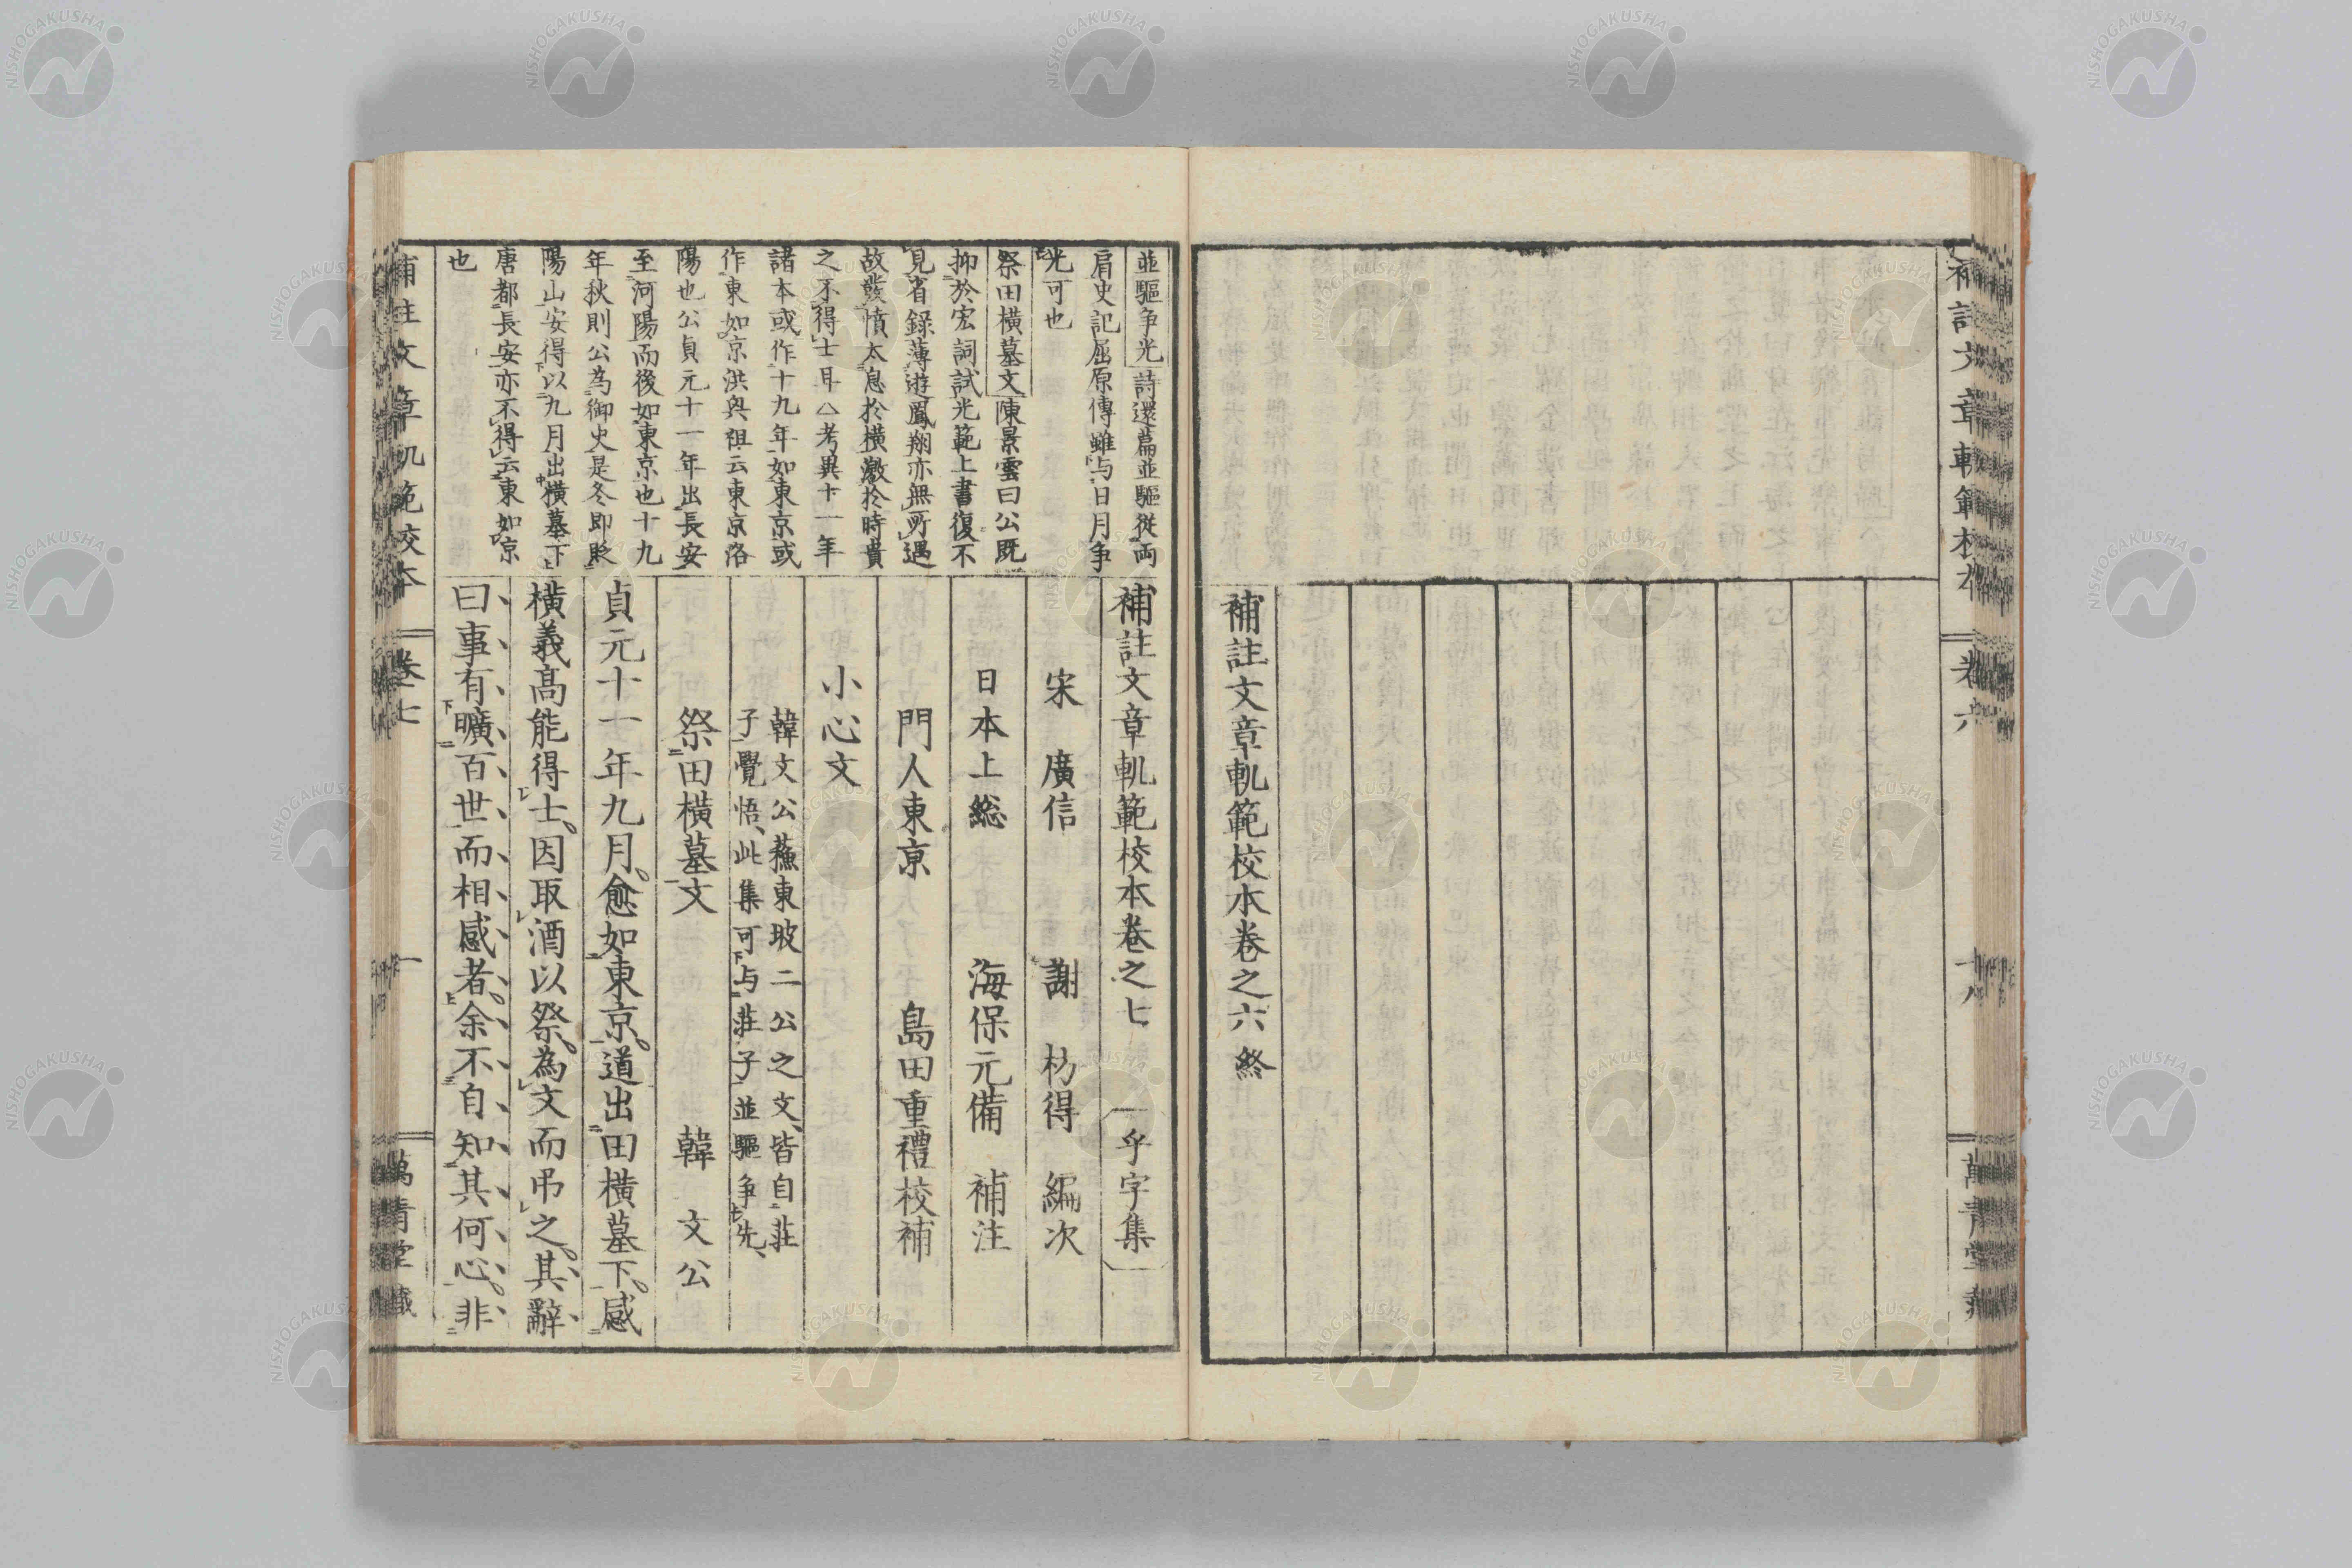 補註文章軌範校本
卷六
十八
萬青堂藏
補註文章軌範校本卷之六 終
並驅争光 詩還篇並驅從両
肩史記屈原傳雖与日月争
光可也
祭田横墓文 陳景雲曰公既
抑於宏詞試光範上書復不
見省録薄遊鳳翔亦無所遇
故發憤太息於横激於時貴
之不得士耳△考異十一年
諸本或作十九年如東京或
作東如京洪與祖云東京洛
陽也公貞元十一年出長安
至河陽而後如東京也十九
年秋則公為御史是冬即貶
陽山安得以九月出横墓下
唐都長安亦不得云東如京
也
補註文章軌範校本卷之七 乎字集
宋 廣信 謝 枋得 編次
日本上総 海保元備 補注
門人東京 島田重禮校補
小心文
韓文公蘓東坡二公之文、皆自莊
子覺悟、此集可与莊子並驅争先、
祭田横墓文 韓 文公
貞元十一年九月。愈如東京。道出田横墓下。感
横義髙能得士。因取酒以祭。為文而吊之。其辭
曰事有曠百世而相感者。余不自知其何心。非
補註文章軌範校本
卷七
一
萬青堂藏
NISHOGAKUSHA